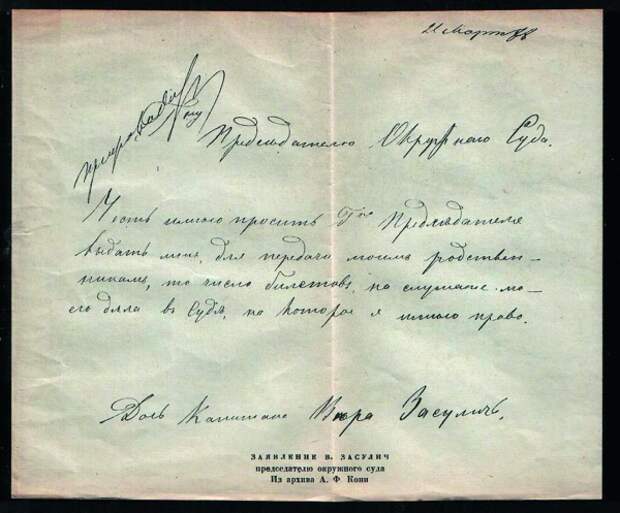 21 Марта 78
Председателю Окружнаго Суда.
Честь имѣю просить Гна Предсѣдателя
выдать мнѣ, для передачи моимъ родствен-
никамъ, то число билетовъ, на слушанiе мо-
его дѣла въ Судѣ, на которое я имѣю право.
Дочь Капитана Вѣра Засуличъ.
ЗАЯВЛЕНИЕ В. ЗАСУЛИЧ
председателю окружного суда
Из архива А. Ф. Кони